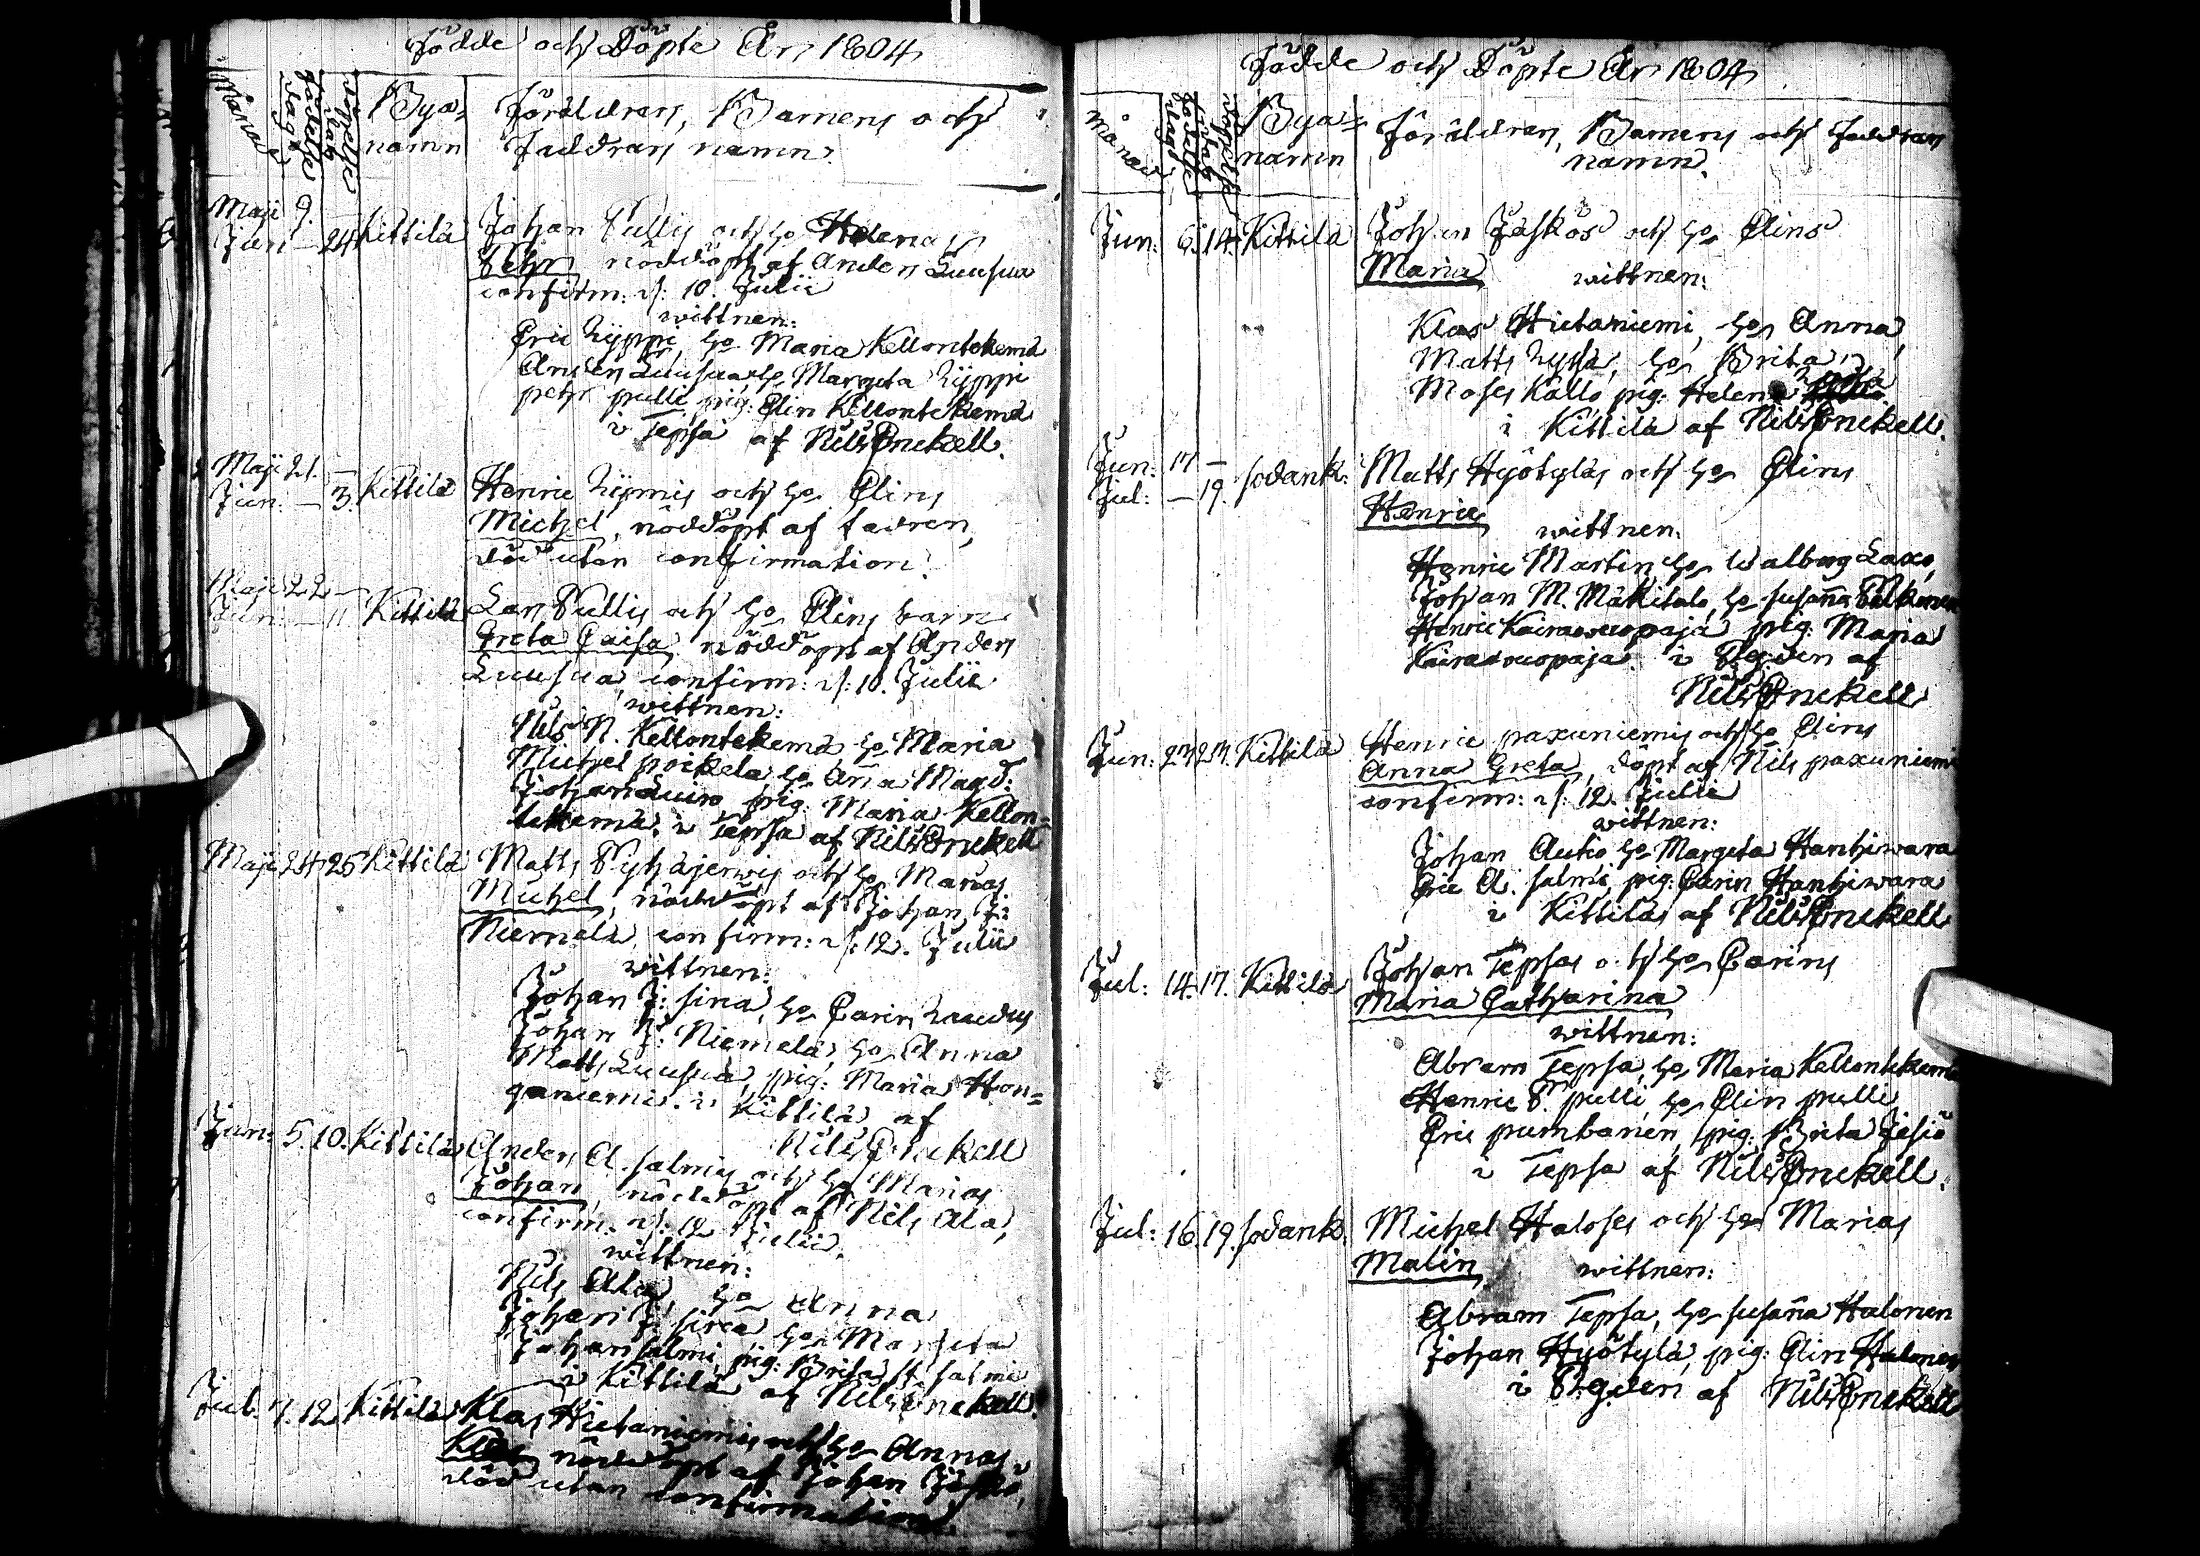 Födde och Döpte År 1804
Månad
födelse dag
döpelse dag
Bya-
namn
Föräldrars, Barnens och
Faddrars namn.
Maji 9. —
Jun. — 24 Kittilä
Johan Pullis och ho Helenas
Pehr, nöddöpt af Anders Luusua
confirm: d: 10. Julii
wittnen:
Eric Zyppi, ho Maria Kellontekemä
Anders Luusua ho Margeta Zyppi
petr pulli, pig: Elin Kellontekemä
i Tepsa af Nils Enckell.
Maji 21. —
Jun. — 3. Kittilä
Henric och ho Elins
Michel, nöddöpt af fadren,
död utan confirmation.
Maji 22 —
Jun: — 11 Kittilä
Lars Pullis och ho Elins barn
Greta Caisa, nöddöpt af Anders
Luusua, confirm: d: 10. Julii
wittnen:
Nils N. Kellontekemä ho Maria
Michel pockela ho Anna Magd:
Johan Luiro pig: Maria Kellon=
tekemä, i Tepsa af Nils Enckell
Maji 24 25 Kittilä
Matts Pyhäjerwis och ho Marias
Michel, nöddöpt af Johan J:
Niemelä, confirm: d: 12. Julii
wittnen:
Johan J: sirva, ho Carin
Johan J: Niemelä, ho Anna
Matts Luusua, pig: Maria Hon=
ganiemi. i Kittilä af
Nils Enckell
Jun: 5. 10. Kittilä
Anders A. salmis och ho Marias
Johan, nöddöpt af Nils Ala,
confirm. d: 12 Julii.
wittnen:
Nils Ala, ho Anna
Johan J: sirva ho Margeta
Johan salmi, pig: Brita H. salmi
i Kittilä af Nils Enckell.
Jul. 7. 12 Kittilä
Klas Hietaniemis och ho Annas
Klas nöddöpt af Johan Jeskö,
död utan confirmation.
Födde och Döpte År 1804
Månad
födelse dag
döpelse dag
Bya=
namn
Föräldrars, Barnens och Faddrars
namn.
Jun: 6. 14. Kittilä
Johan Jeskös och ho Elins
Maria wittnen:
Klas Hietaniemi, ho Anna,
Matts Zyssä, ho Brita,
Moses Kallo pig: Helena
i Kittilä af Nils Enckell.
Jun: 17 —
Jul: — 19. sodank:
Matts Hyötyläs och ho Elins
Henric
wittnen.
Henric Martin ho Walborg Laxo,
Johan M. Mäkitalo, ho susanna Pelkonen
Henric Kairawuopaja pig. Maria
Kairawuopaja. i Pegden af
Nils Enckell
Jun: 23. 24. Kittilä
Henric paxuniemis och ho Elins
Anna Greta, döpt af Nils paxuniemi
confirm: d: 12. Julii
wittnen:
Johan Autio ho Margeta Hanhiwara
Eric A. salmi, pig: Carin Hanhiwara
i Kittilä, af Nils Enckell
Jul: 14. 17. Kittilä
Johan Tepsas och ho Carins
Maria Catharina
wittnen:
Abram Tepsa, ho Maria Kellontekemä
Henric P. pulli, ho Elin pulli
Eric pumbanen, pig: Brita Jesiö
i Tepsa af Nils Enckell.
Jul: 16. 19. sodank.
Michel Haloses och ho Marias
Malin, wittnen:
Abram Tepsa, ho susanna Halonen
Johan Hyötylä, pig: Elin Halonen
i Pegden af Nils Enckell